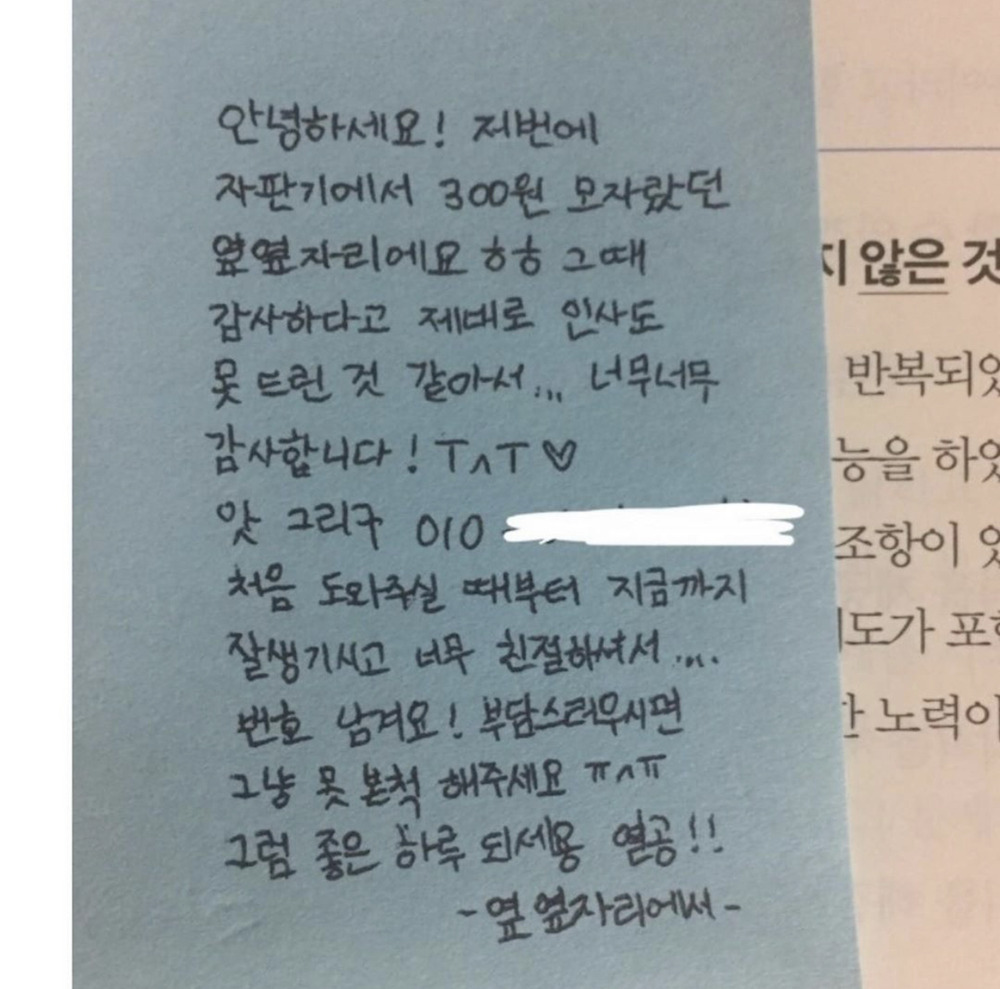 안녕하세요! 저번에
자판기에서 300원 모자랐던
옆옆자리에요 ㅎㅎ 그때
감사하다고 제대로 인사도
못 드린 것 같아서... 너무너무
감사합니다! ㅜ^ㅜ♡
앗 그리구 010
처음 도와주실 때부터 지금까지
잘생기시고 너무 친절하셔서....
번호 남겨요! 부담스러우시면
그냥 못 본척 해주세요 ㅠ^ㅠ
그럼 좋은 하루 되세용 열공!!
-옆옆자리에서-
지 않은 것
반복되었
능을 하였
조항이 있
도가 포함
한 노력이